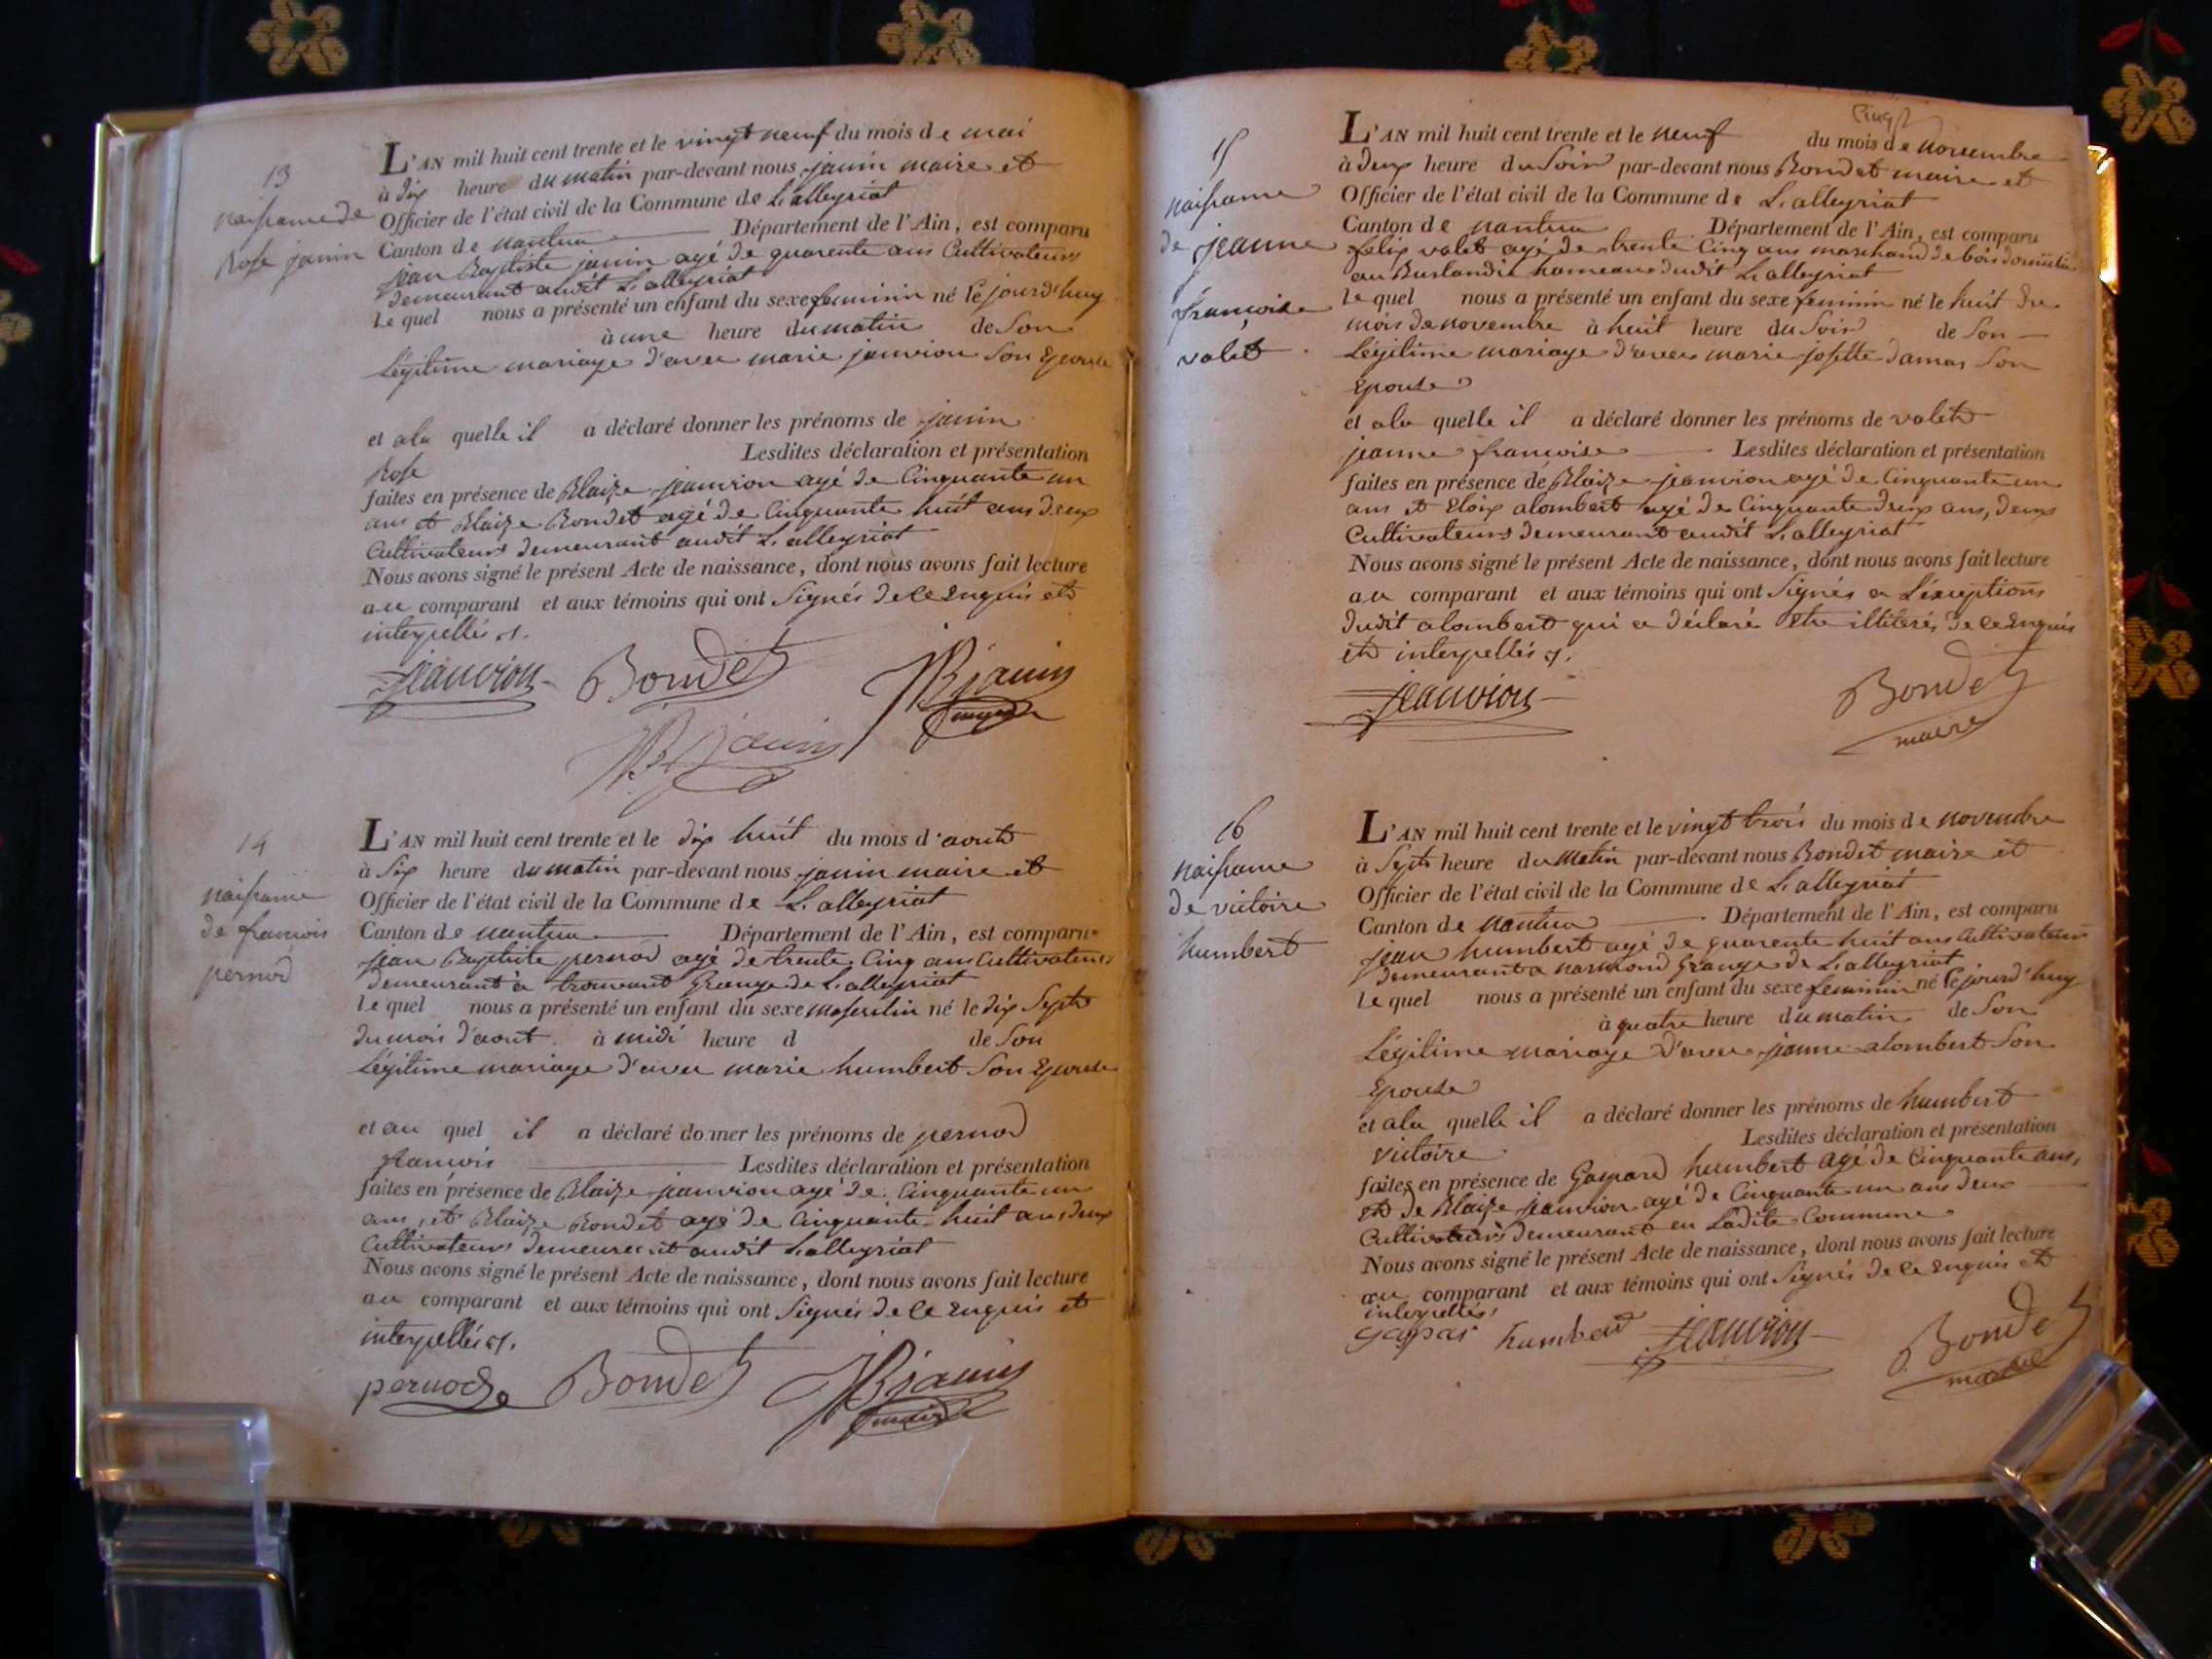 13
naissance de
Rose janin
L'AN mil huit cent trente et le vingt neuf du mois de mai
à dix heure du matin par-devant nous janin maire et
Officier de l'état civil de la Commune de L'alleyriat
Canton de nantua Département de l'Ain, est comparu
jean Baptiste janin agé de quarente ans Cultivateur
demeurant audit L'alleyriat
Le quel nous a présenté un enfant du sexe feminin né le jourd'huy
à une heure du matin de Son
Légitime mariage d'avec marie janvion Son Epouse
et a la quelle il a déclaré donner les prénoms de janin
Rose Lesdites déclaration et présentation
faites en présence de Blaize jeanvion agé de Cinquante un
ans et Blaize Bondet agé de Cinquante huit ans deux
Cultivateurs demeurant audit L'alleyriat
Nous avons signé le présent Acte de naissance, dont nous avons fait lecture
au comparant et aux témoins qui ont Signés de ce Enquis et
interpellés
jeanvion Bondet JB janin
maire
JB janin
14
naissance
de francois
pernod
L'AN mil huit cent trente et le dix huit du mois d'aout
à Six heure du matin par-devant nous janin maire et
Officier de l'état civil de la Commune de L'alleyriat
Canton de nantua Département de l'Ain, est comparu
jean Baptiste pernod agé de trente Cinq ans Cultivateur
demeurant à Grange de L'alleyriat
Le quel nous a présenté un enfant du sexe masculin né le dix Sept
du mois d'aout à midi heure d de Son
Légitime mariage d'avec marie humbert Son Epouse
et au quel il a déclaré donner les prénoms de pernod
francois Lesdites déclaration et présentation
faites en présence de Blaize jeanvion agé de Cinquante un
ans, et Blaize Bondet agé de Cinquante huit ans deux
Cultivateurs demeurant audit L'alleyriat
Nous avons signé le présent Acte de naissance, dont nous avons fait lecture
au comparant et aux témoins qui ont Signés de ce Enquis et
interpellés
pernod Bondet JB janin
maire
15
naissance
de jeanne
françoise
valet
L'AN mil huit cent trente et le neuf du mois de novembre
à deux heure du Soir par-devant nous Bondet maire et
Officier de l'état civil de la Commune de L'alleyriat
Canton de nantua Département de l'Ain, est comparu
felix valet agé de trente Cinq ans marchand de bois
au Burlandier hameau dudit L'alleyriat
Le quel nous a présenté un enfant du sexe feminin né le huit du
mois de novembre à huit heure du Soir de Son
Légitime mariage d'avec marie josette damas Son
Epouse
et a la quelle il a déclaré donner les prénoms de valet
jeanne francoise Lesdites déclaration et présentation
faites en présence de Blaize jeanvion agé de Cinquante un
ans et Eloix alombert agé de Cinquante deux ans, deux
Cultivateurs demeurant audit L'alleyriat
Nous avons signé le présent Acte de naissance, dont nous avons fait lecture
au comparant et aux témoins qui ont Signés a L'exceptions
dudit alombert qui a déclaré etre illiteré de ce Enquis
et interpellés
jeanvion Bondet
maire
16
naissance
de victoire
humbert
L'AN mil huit cent trente et le vingt trois du mois de novembre
à Sept heure du Matin par-devant nous Bondet maire et
Officier de l'état civil de la Commune de L'alleyriat
Canton de Nantua Département de l'Ain, est comparu
jean humbert agé de quarente huit ans Cultivateur
demeurant a Grange de L'alleyriat
Le quel nous a présenté un enfant du sexe feminin né le jourd'huy
à quatre heure du matin de Son
Légitime mariage d'avec jeanne alombert Son
Epouse
et a la quelle il a déclaré donner les prénoms de humbert
victoire Lesdites déclaration et présentation
faites en présence de Gaspard humbert agé de Cinquante ans,
et de Blaize jeanvion agé de Cinquante un ans deux
Cultivateurs demeurant en Ladite Commune
Nous avons signé le présent Acte de naissance, dont nous avons fait lecture
au comparant et aux témoins qui ont Signés de ce Enquis et
interpellés,
gaspar humbert jeanvion Bondet
maire